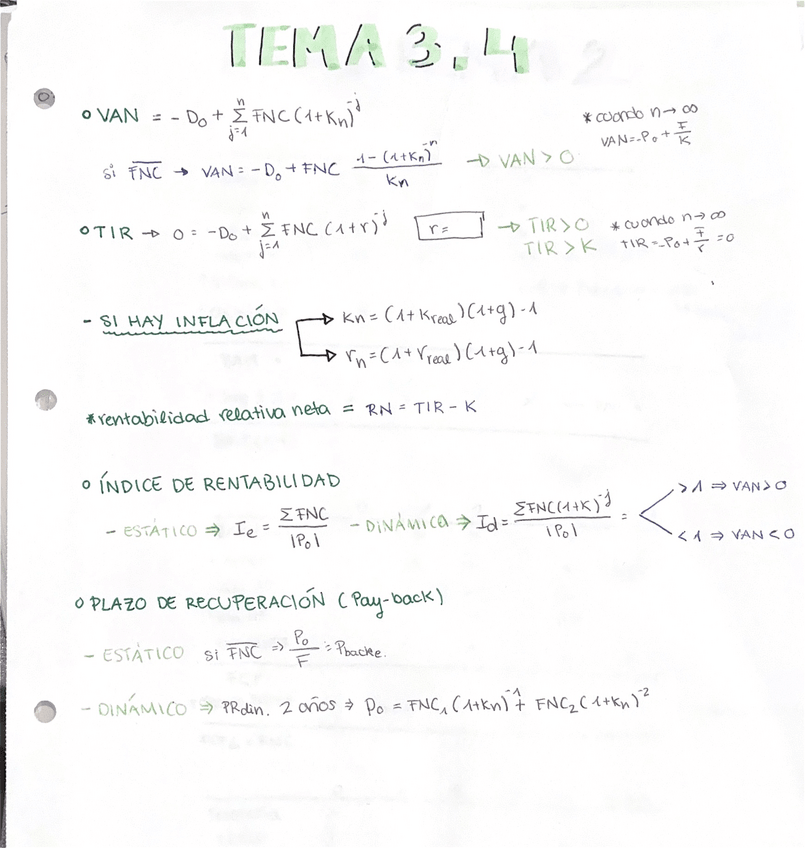 TEMA 3.4
o VAN = - D₀ + Σⁿⱼ₌₁ FNC (1+Kn)⁻ʲ
* cuando n → ∞
VAN = -P₀ + F/K
si F̅N̅C̅ → VAN = -D₀ + FNC (1-(1+Kn)⁻ⁿ)/Kn → VAN > 0
o TIR → 0 = -D₀ + Σⁿⱼ₌₁ FNC (1+r)⁻ʲ r = → TIR > 0
TIR > K
* cuando n → ∞
TIR = -P₀ + F/r = 0
- SI HAY INFLACIÓN → Kn = (1+Kreal)(1+g) -1
→ rn = (1+rreal)(1+g) -1
* rentabilidad relativa neta = RN = TIR - K
o ÍNDICE DE RENTABILIDAD
- ESTÁTICO ⇒ Ie = ΣFNC/|P₀| - DINÁMICA ⇒ Id = ΣFNC(1+K)⁻ʲ/|P₀| =
> 1 ⇒ VAN > 0
< 1 ⇒ VAN < 0
o PLAZO DE RECUPERACIÓN (Pay-back)
- ESTÁTICO si F̅N̅C̅ ⇒ P₀/F = Pbacke.
- DINÁMICO ⇒ PRdin. 2 años ⇒ P₀ = FNC₁ (1+Kn)⁻¹ + FNC₂ (1+Kn)⁻²